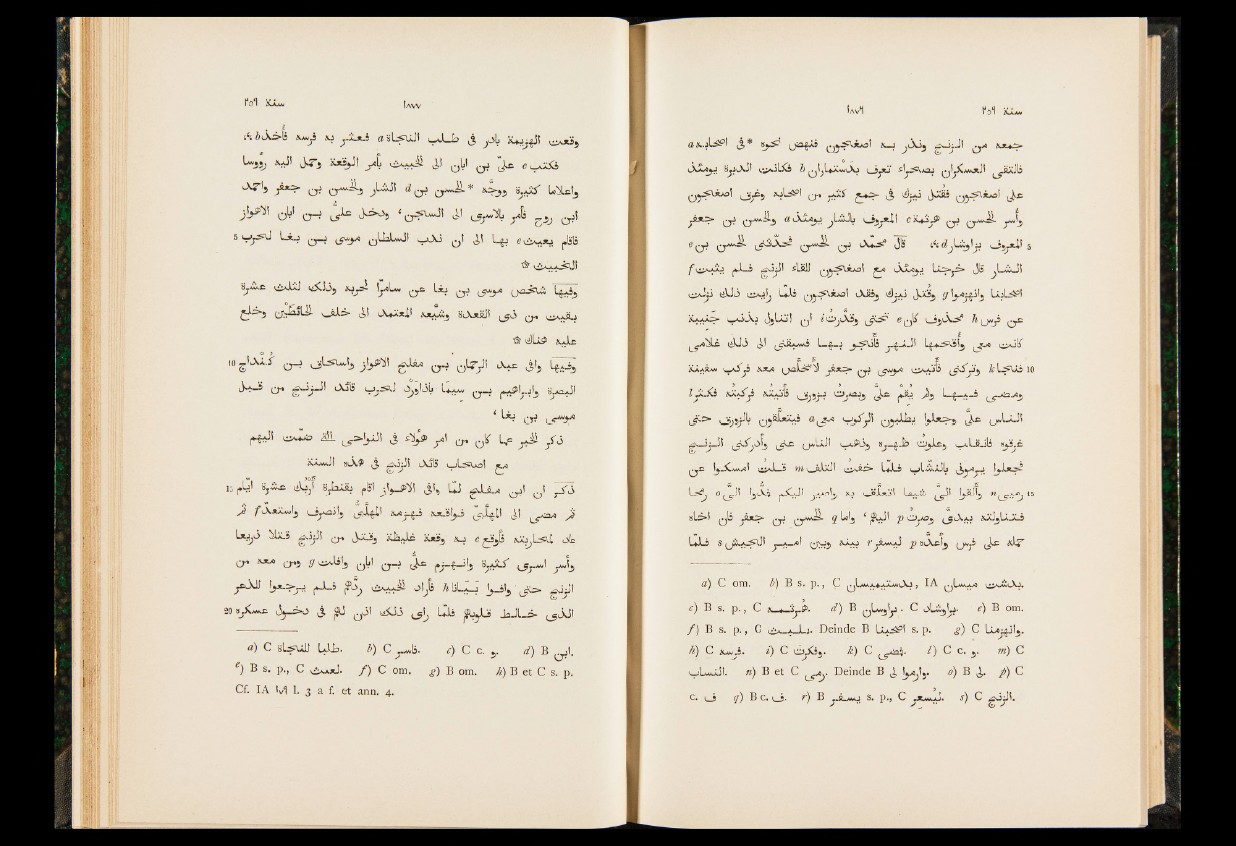 سنة ٢٥٩ ١٨٧٦
جمعه من الزنج ونذر به اصغجون فنهض نحوه *في اصحابه a
فالتقى العسكران بصحراء تعرف بدَسْتماران b فكانت الدبرة يومئذ
على اصغجون فقُتل نيزك في جمع كثير من اصحابه وغرق اصغجون
وأسر الحسن بن هرثمة c المعروف بالشار يومئذ a والحسن بن جعفر
5 المعروف بزاوشار d، قال محمّد بن الحسن فحدّثنى الحسن بن e
الشار قال خرجنا يومئذ مع اصغجون للقاء الزنج فلم يثبت f
اصحابنا وانهزموا g وقُتل نيزك وفقد اصغجون فلمّا رايت ذلك نزلت
عن فرس h محذوف كان e تحتى وقدّرتُ i ان اتناول بذنب جنيبة
كانت معى وأُقحمها النهر فأنجو بها فسبقنى الى ذلك غلامى
10 فنجا k وتركنى فأتيت موسى بن جعفر لأتخلّص معه فركب سفينة
ومضى فيها ولم يُقِمْ علىّ وبصرتُ بزورق فأتيتُه فركبتُه فكثر l
الناس علىّ وجعلوا يطلبون الركوب معى a فيتعلّقون بالزورق حتى
غرقوه فانقلب وعلوتُ ظهره وذهب الناس عنى وأدركنى الزنج
فجعلوا يرموننى بالنشّاب فلمّا خفتُ التلف m قلت امسكوا عن
15 رميى n والقوا الىّ شيئا اتعلّق به واصير اليكم فمدّوا الىّ o رمحا
فتناولته بيدى وصرتُ p اليهم، واما q الحسن بن جعفر فان اخاه
حمله على فرس وأعدّه p ليسفر r بينه وبين امير الجيش s فلمّا
a) C om. b) B s. p., C بدستيميسان, IA بدشت ميسان.
c) B s. p., C هرثمه. d) B براوسان. C براوشاد. e) B om.
f) B s. p., C يلبث. Deinde B اصحبنا s. p. g) C وانهزمنا.
h) C فرسه. i) C وفكرت. k) C فمضى. l) C c. و. m) C
النشاب. n) B et C رمى. Deinde B وارموا لى. o) B لى. p) C
c. ف q) B c. ف. r) B يسفر s. p., C ليسعر. s) C الزنج.
سنة ٢٥٩ ١٨٧٧
وقعت الهزيمة بادر فى طلب النجاة a فعثر به فرسه فأخذ b،
فكتب c علىّ بن ابان الى الخبيث بأمر الوقعة وحمل اليه رؤوسا
واعلاما كثيرة ووجّه *الحسن بن d الشار والحسن بن جعفر واحمد
ابن روح فأمر بالاسرى الى السجن، ودخل علىّ بن ابان الاهواز
5 فاقام يعيث e بها الى ان ندب السلطان موسى بن بغا لحرب
الخبيث ☆
وفيها شخص موسى بن بغا عن سامرّا لحربه وذلك لثلث عشرة
بقيت من ذى القعدة وشيّعه المعتمد الى خلف الحائطين وخلع
عليه هناك ☆
10 وفيها وافى عبد الرحمان بن مفلح الاهواز واسحاق بن كنداج
البصرة وابراهيم بن سيما باذاورد لحرب قائد الزنج من قبل
موسى بن بغا،
ذكر الخبر عما كان من امر هؤلاء فى النواحى الّتى ضمّت اليهم
مع اصحاب قائد الزنج فى هذه السنة
15 ذكر ان ابن مفلح لمّا وافى الاهواز اقام بقنطرة أَرْبُك عشرة ايّام
ثم مضى الى المهلّبىّ فواقعه فهزمه المهلّبىّ وانصرف واستعدّ f ثم
عاد لمحاربته فأوقع e به وقعة غليظة وقتل من الزنج قتلا ذريعا
وأسر اسرى كثيرة وانهزم علىّ بن ابان وافلت g ومن معه من
الزنج حتى وافوا بيانا h فأراد الخبيث ردّهم فلم يرجعوا للذعر
20 الذى خالط قلوبهم فلمّا رأى ذلك اذن لهم فى دخول عسكره
a) C طلبا للنجاة. b) C فاسر. c) C c. و. d) B ابن.
e) B s. p., C لعيث. f) C om. g) B om. h) B et C s. p.
Cf. IA ١٧٩ l. 3 a f. et ann. 4.